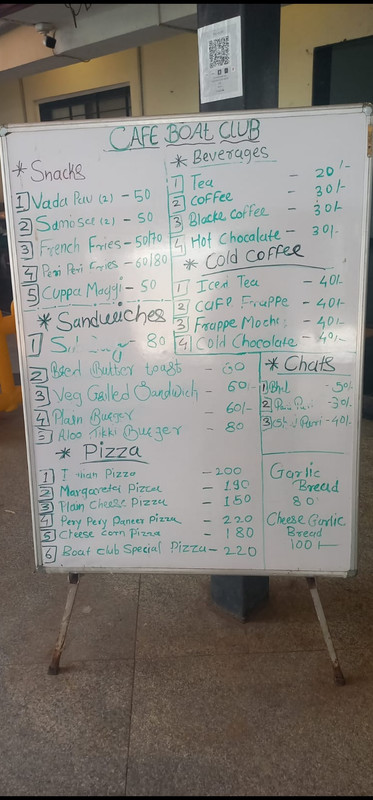 CAFE BOAT CLUB
* Snacks
1 Vada Pav (2) - 50
2 Samosa (2) - 50
3 French Fries - 50/70
4 Peri Peri Fries - 60/80
5 Cuppa Maggi - 50
* Beverages
1 Tea - 20/-
2 Coffee - 30/-
3 Blacke Coffee - 30/-
4 Hot Chocalate - 30/-
* Cold Coffee
1 Iced Tea - 40/-
2 Cafe Frappe - 40/-
3 Frappe Mocha - 40/-
4 Cold Chocalate - 40/-
* Sandwiches
1 - 80
2 Bred Butter toast - 60
3 Veg Grilled Sandwich - 60/-
4 Plain Burger - 60/-
5 Aloo Tikki Burger - 80
* Chats
1 Bhel - 50/-
2 Puri - 30/-
3 Puri - 40/-
* Pizza
1 Pizza - 200
2 Margareta Pizza - 190
3 Plain Cheese Pizza - 150
4 Pery Pery Paneer Pizza - 220
5 Cheese corn Pizza - 180
6 Boat club Special Pizza - 220
Garlic
Bread
80
Cheese Garlic
Bread
100/-